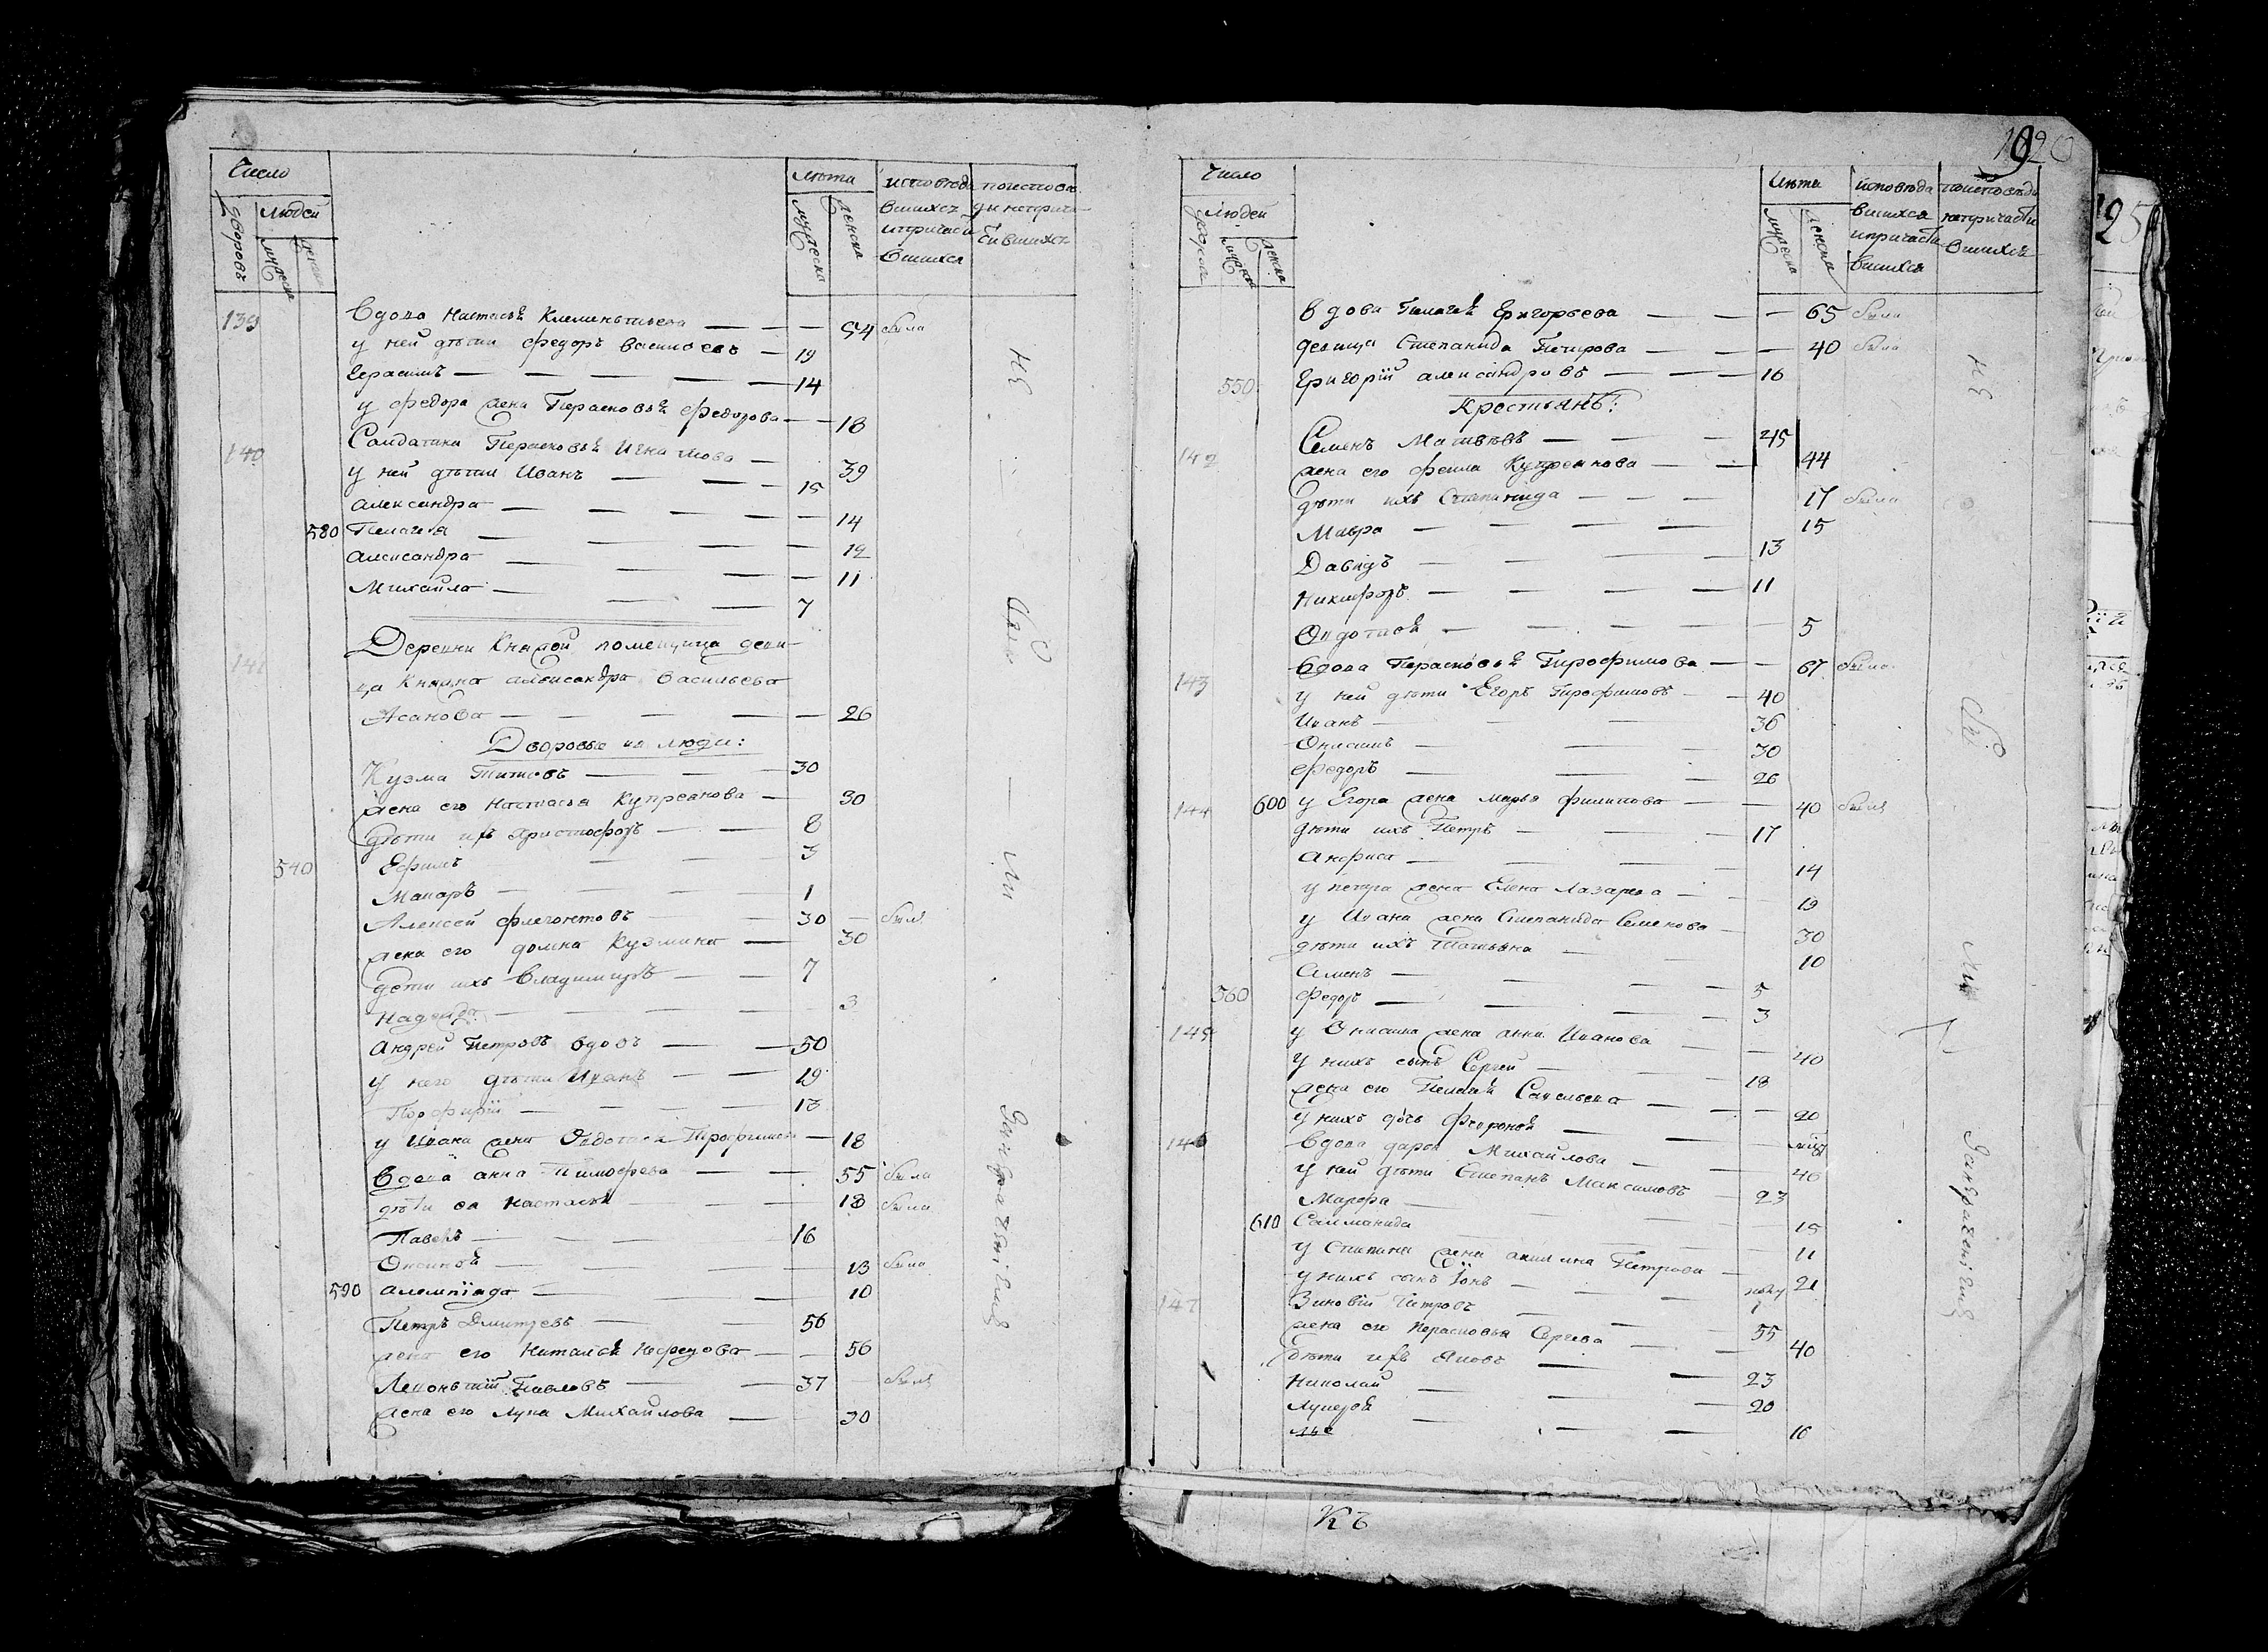 Число
людей
дворовъ
мужеска
женска
лѣта
мужеска
женска
исповѣда
вшихсѧ
ипричасти
вшихся
139 Вдова Настасьѧ Клементьева — — — 54 была
у ней дѣти Федоръ Васильевъ — 19
Герасимъ — — — — 14
у Федора жена Парасковьѧ Федорова — — 18
140 Салдатика Парасковьѧ Игнатова — 39
у ней дѣти Иванъ — — — 15
Александра — — — — 14
580 Пелагея — — — — 12
Александра — — — — 11
Михайла — — — 7
141 Деревни Княжой помещица деви-
ца Княжна Александра Васильева
Асанова — — — — — 26
Дворовые ея люди:
Кузма Титовъ — — — 30
жена его Настасья Купреянова — 30
дѣти ихъ Христофоръ — — 8
540 Ефимъ — — — 3
Макаръ — — — 1
Алексей Флегонтовъ — — 30 — былъ
жена его Домна Кузмина — 30
дѣти ихъ Владимиръ — — 7
Надежда — — — — 3
Андрей Петровъ вдовъ — — 50
у него дѣти Иванъ — — 19
Порфирiй — — — — 13
у Ивана жена Федотья Трофимова — 18
Вдова Анна Тимофеева — — 55 была
дѣти еа Настасьѧ — — 18 была
Павелъ — — — 16
Оксиньѧ — — — 13 была
590 Алимпiада — — — 10
Петръ Дмитревъ — — 56
жена его Наталья Нефедова — — 56
Леонътiй Павловъ — — 37 былъ
жена его Лукия Михайлова — 30
Не
были
За нерачениемъ
120
Число
людей
мужеска
женска
Лѣта
мужеска
женска
исповѣда
вшихся
ипричасти
вшихся
поисповѣди
непричасти
вшихсѧ
Вдова Пелагеѧ Григорьева — — — 65 была
девица Степанида Петрова — — — 40 была
550 Григорiй Александровъ — — — 16
Крестьянъ:
142 Семенъ Матвѣевъ — — 45
жена его Фекла Купреянова — — 44
дѣти ихъ Степанида — — — 17 была
Мавра — — — — 15
Давидъ — — — 13
Никифоръ — — — — 11
Овдотьѧ — — — — 5
143 Вдова Парасковьѧ Трофимова — — 67 была
у ней дѣти Егоръ Трофимовъ — — 40
Иванъ — — — 36
Онисимъ — — — 30
Федоръ — — — 26
144 600 у Егора жена Марья Филипова — — 40 была
дѣти ихъ Петръ — — 17
Анфиса — — — 14
у Петра жена Елена Лазарева — 19
у Ивана жена Степанида Семенова — 30
дѣти ихъ Татьяна — — 10
Семенъ — — — 5
560 Федоръ — — — 3
145 у Онисима жена Анна Иванова — — 40
у нихъ сынъ Сергей — — 18
жена его Пелагеѧ Савельева — — — 20
у нихъ дочь Февроньѧ — —
146 Вдова Дарья Михайлова — — 46
у ней дѣти Степанъ Максимовъ — 23
Марфа — — — 15
610 Саламанида — — 11
у Степана жена Акилина Петрова — 21
у нихъ сынъ Iонъ — — полу
147 Зиновiй Петровъ — — 55
жена его Парасковья Сергева — — 40
дѣти ихъ Яковъ — — 23
Николай — — — 20
Лукерьѧ — — — 16
Не
были
За нерачениемъ
Къ